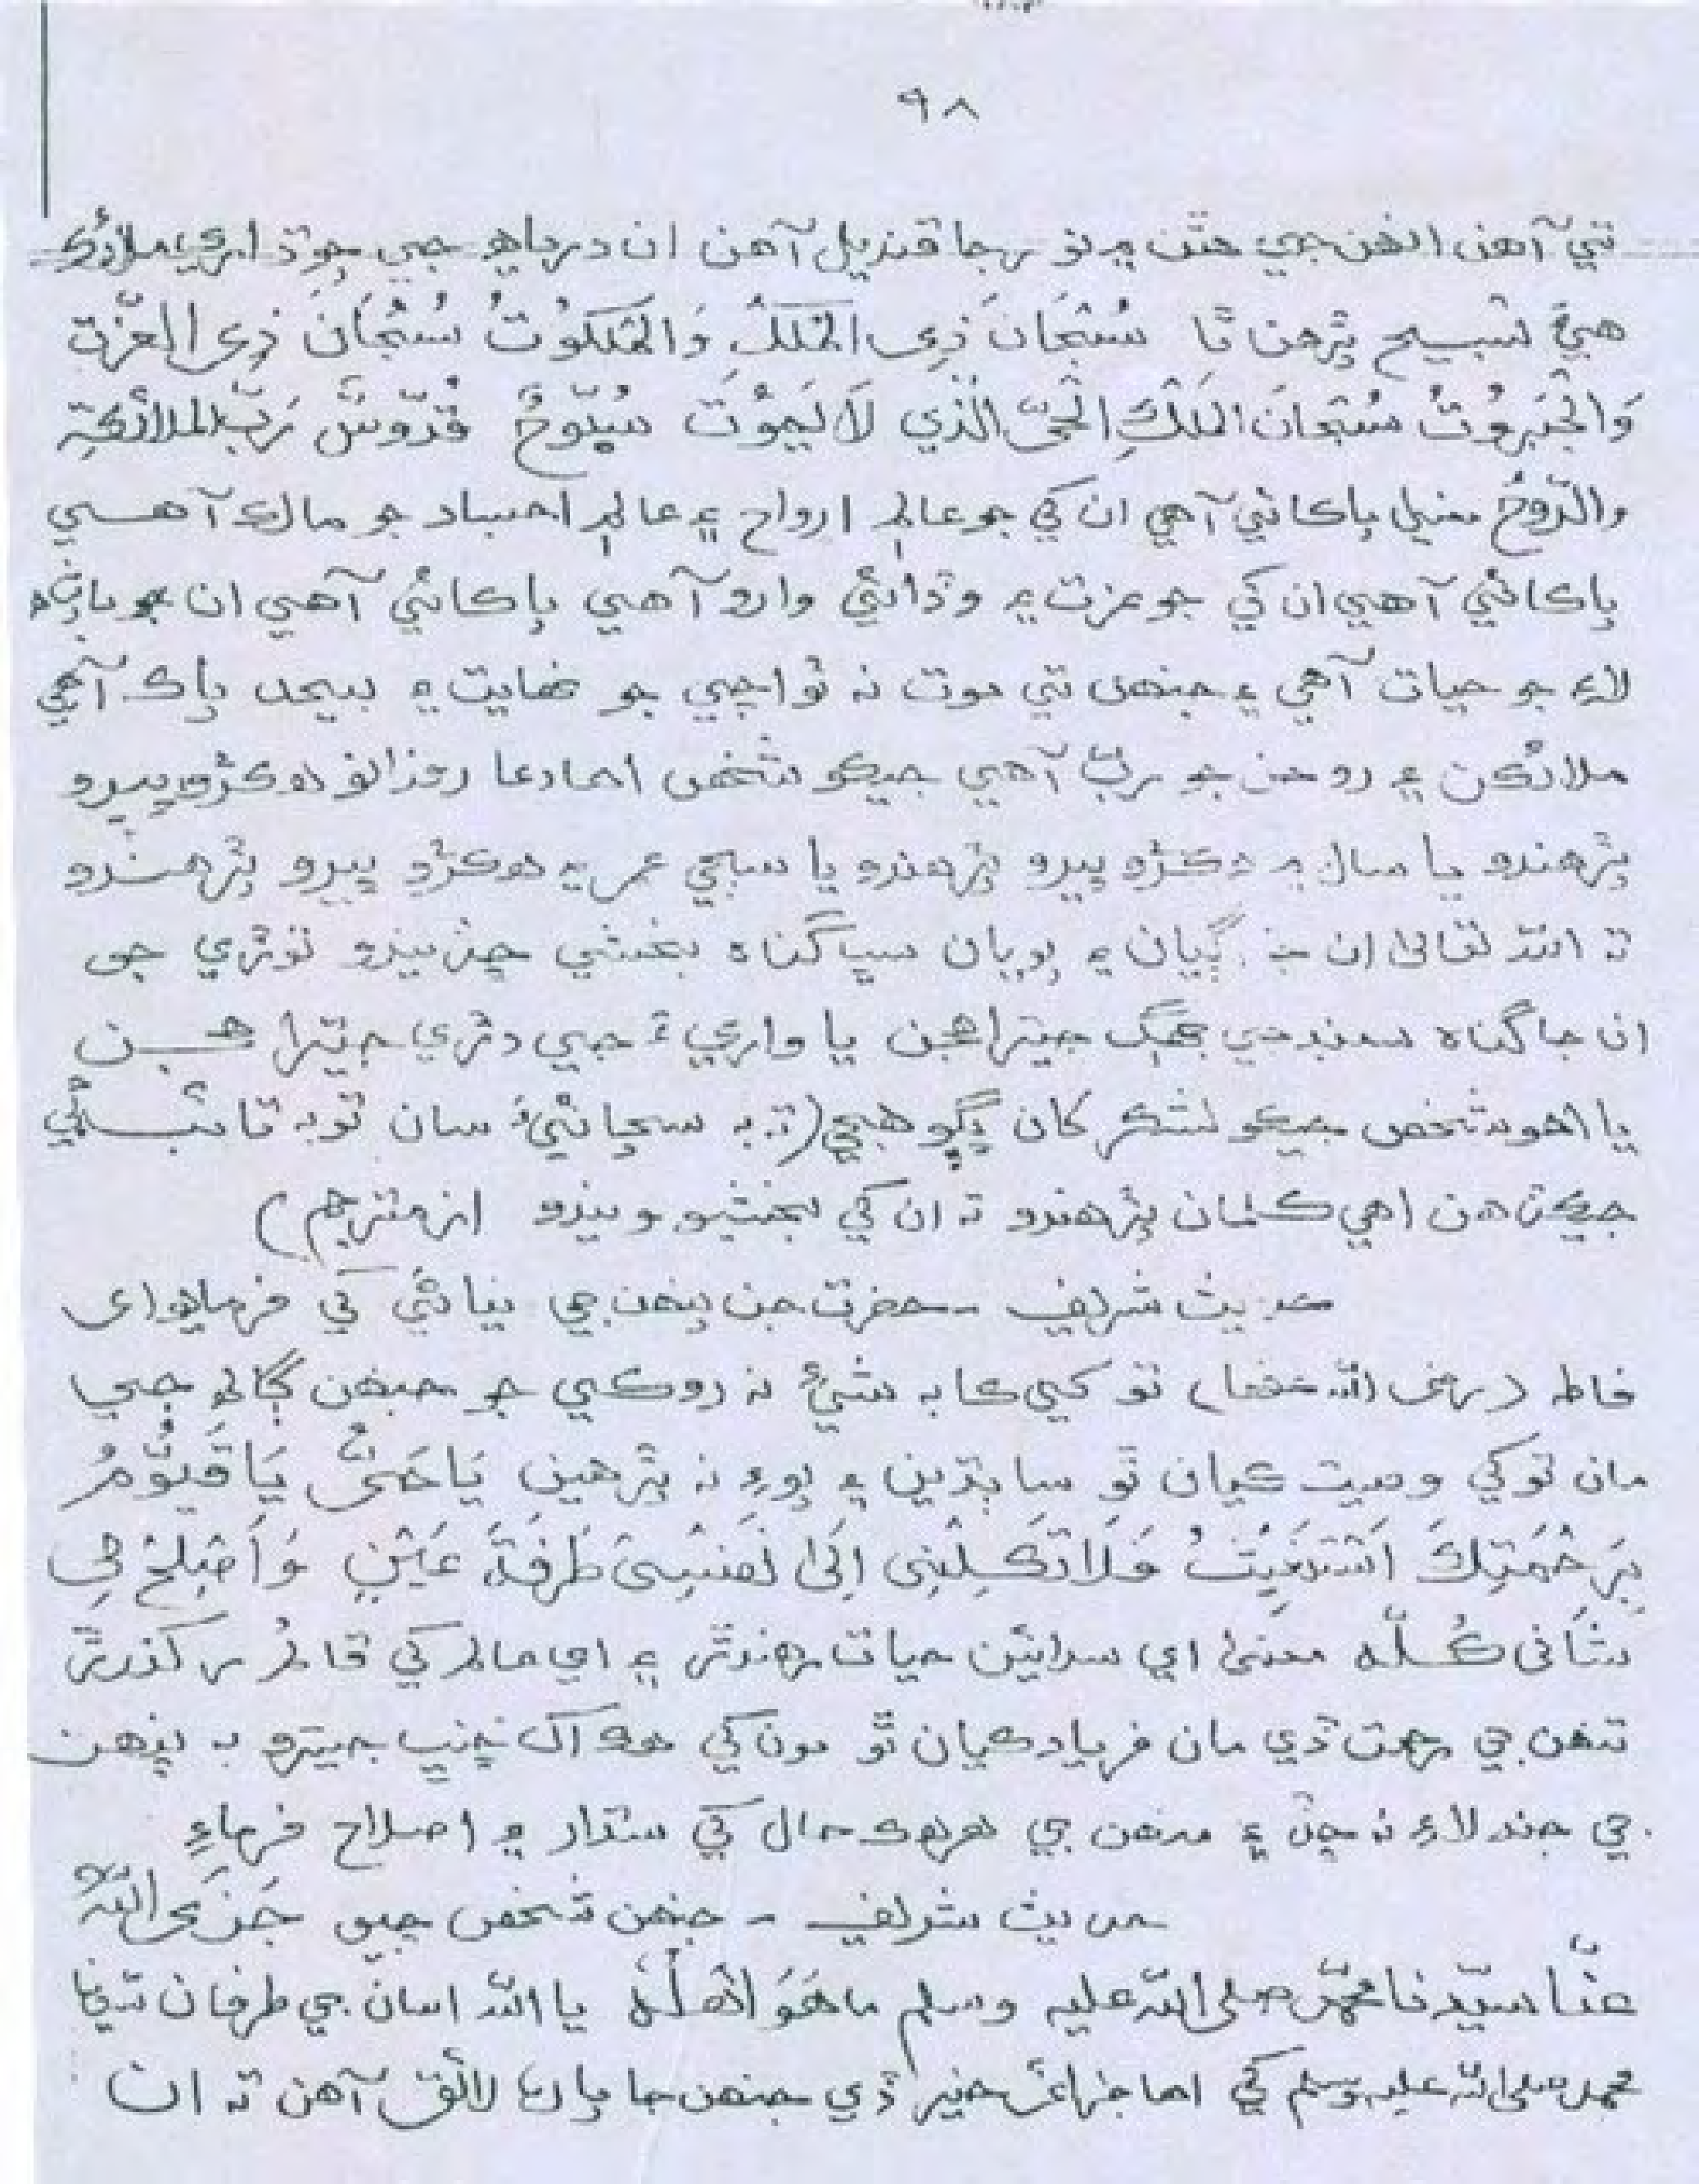 ۹۸
تي آهن انهن جي هٿن ۾ نور جا قنديل آهن ان درياهه جي چوڌاري ملائڪ
هيءَ تسبيح پڙهن ٿا سُبْحَانَ ذِی الْمُلْكِ وَالْمَلَكُوْتُ سُبْحَانَ ذِی العِزَّت
وَالْجَبَرُوْتُ سُبْحَانَ المَلْكِ الْحَیِّ الَّذِي لَا يَمُوْتَ سُبُّوحٌ قُدُّوسٌ رَبُّ الملائكةِ
والرُّوحُ معنيٰ پاڪائي آهي ان کي جو عالم ارواح ۽ عالم اجساد جو مالڪ آهي
پاڪائي آهي ان کي جو عزت ۽ وڏائي وارو آهي پاڪائي آهي ان جو
لاءِ جو حيات آهي ۽ جنهن تي موت نہ ٿو اچي جو نهايت ۽ بيحد پاڪ آهي
ملائڪن ۽ روحن جو ربّ آهي جيڪو شخص اها دعا روزانو هڪڙو ڀيرو
پڙهندو يا سال ۾ هڪڙو ڀيرو پڙهندو يا سڄي عمر ۾ هڪڙو ڀيرو پڙهندو
تہ الله تعالىٰ ان جا اڳيان ۽ پويان سڀ گناه بخشي ڇڏيندو توڙي جو
ان جا گناه سمنڊ جي جھڳ جيترا هجن يا واريءَ جي دڙي جيترا هجن
يا اهو شخص جيڪو لشڪر کان ڀڳو هجي (تہ بہ سچائيءَ سان توبہ تائب ٿي
جيڪڏهن اهي ڪلمان پڙهندو تہ ان کي بخشيو ويندو از مترجم)
حديث شريف ۔ حضرت جن پنهن جي نياڻي کي فرمايو اي
فاطمه (رضی الله عنها) تو کي ڪا بہ شئي نہ روڪي جو جنهن ڳالھ جي
مان توکي وصيت ڪيان ٿو سا ٻڌين ۽ پوءِ نہ پڙهين يَا حَیُّ يَا قَيُّوْمُ
بِرَحْمَتِكَ اَسْتَغِيْثُ فَلَا تَكِلْنِی اِلىٰ نَفْسِیْ طَرْفَةَ عَيْنٍ وَاَصْلِحْ لِی
شَانِی كُلّه معنىٰ اي سدائين حيات رهندڙ ۽ اي عالم کي قائم رکندڙ
تنهن جي رحمت ڏي مان فرياد ڪيان ٿو مون کي هڪ اک ڇنڀ جيترو بہ پنهن
جي جند لاءِ نہ ڇڏ ۽ منهن جي هر هڪ حال کي سڌار ۽ اصلاح فرماءِ
حديث شريف ۔ جنهن شخص چيو جَزَی اللّٰهُ
عنَّا سَيِّدنا محمّد صلى الله عليه وسلم ما هُوَ اَهْلُهٗ يا الله اسان جي طرفان سيدنا
محمد صلى الله عليه وسلم کي اها جزاءِ خير ڏي جنهن جا پاڻ لائق آهن تہ ان